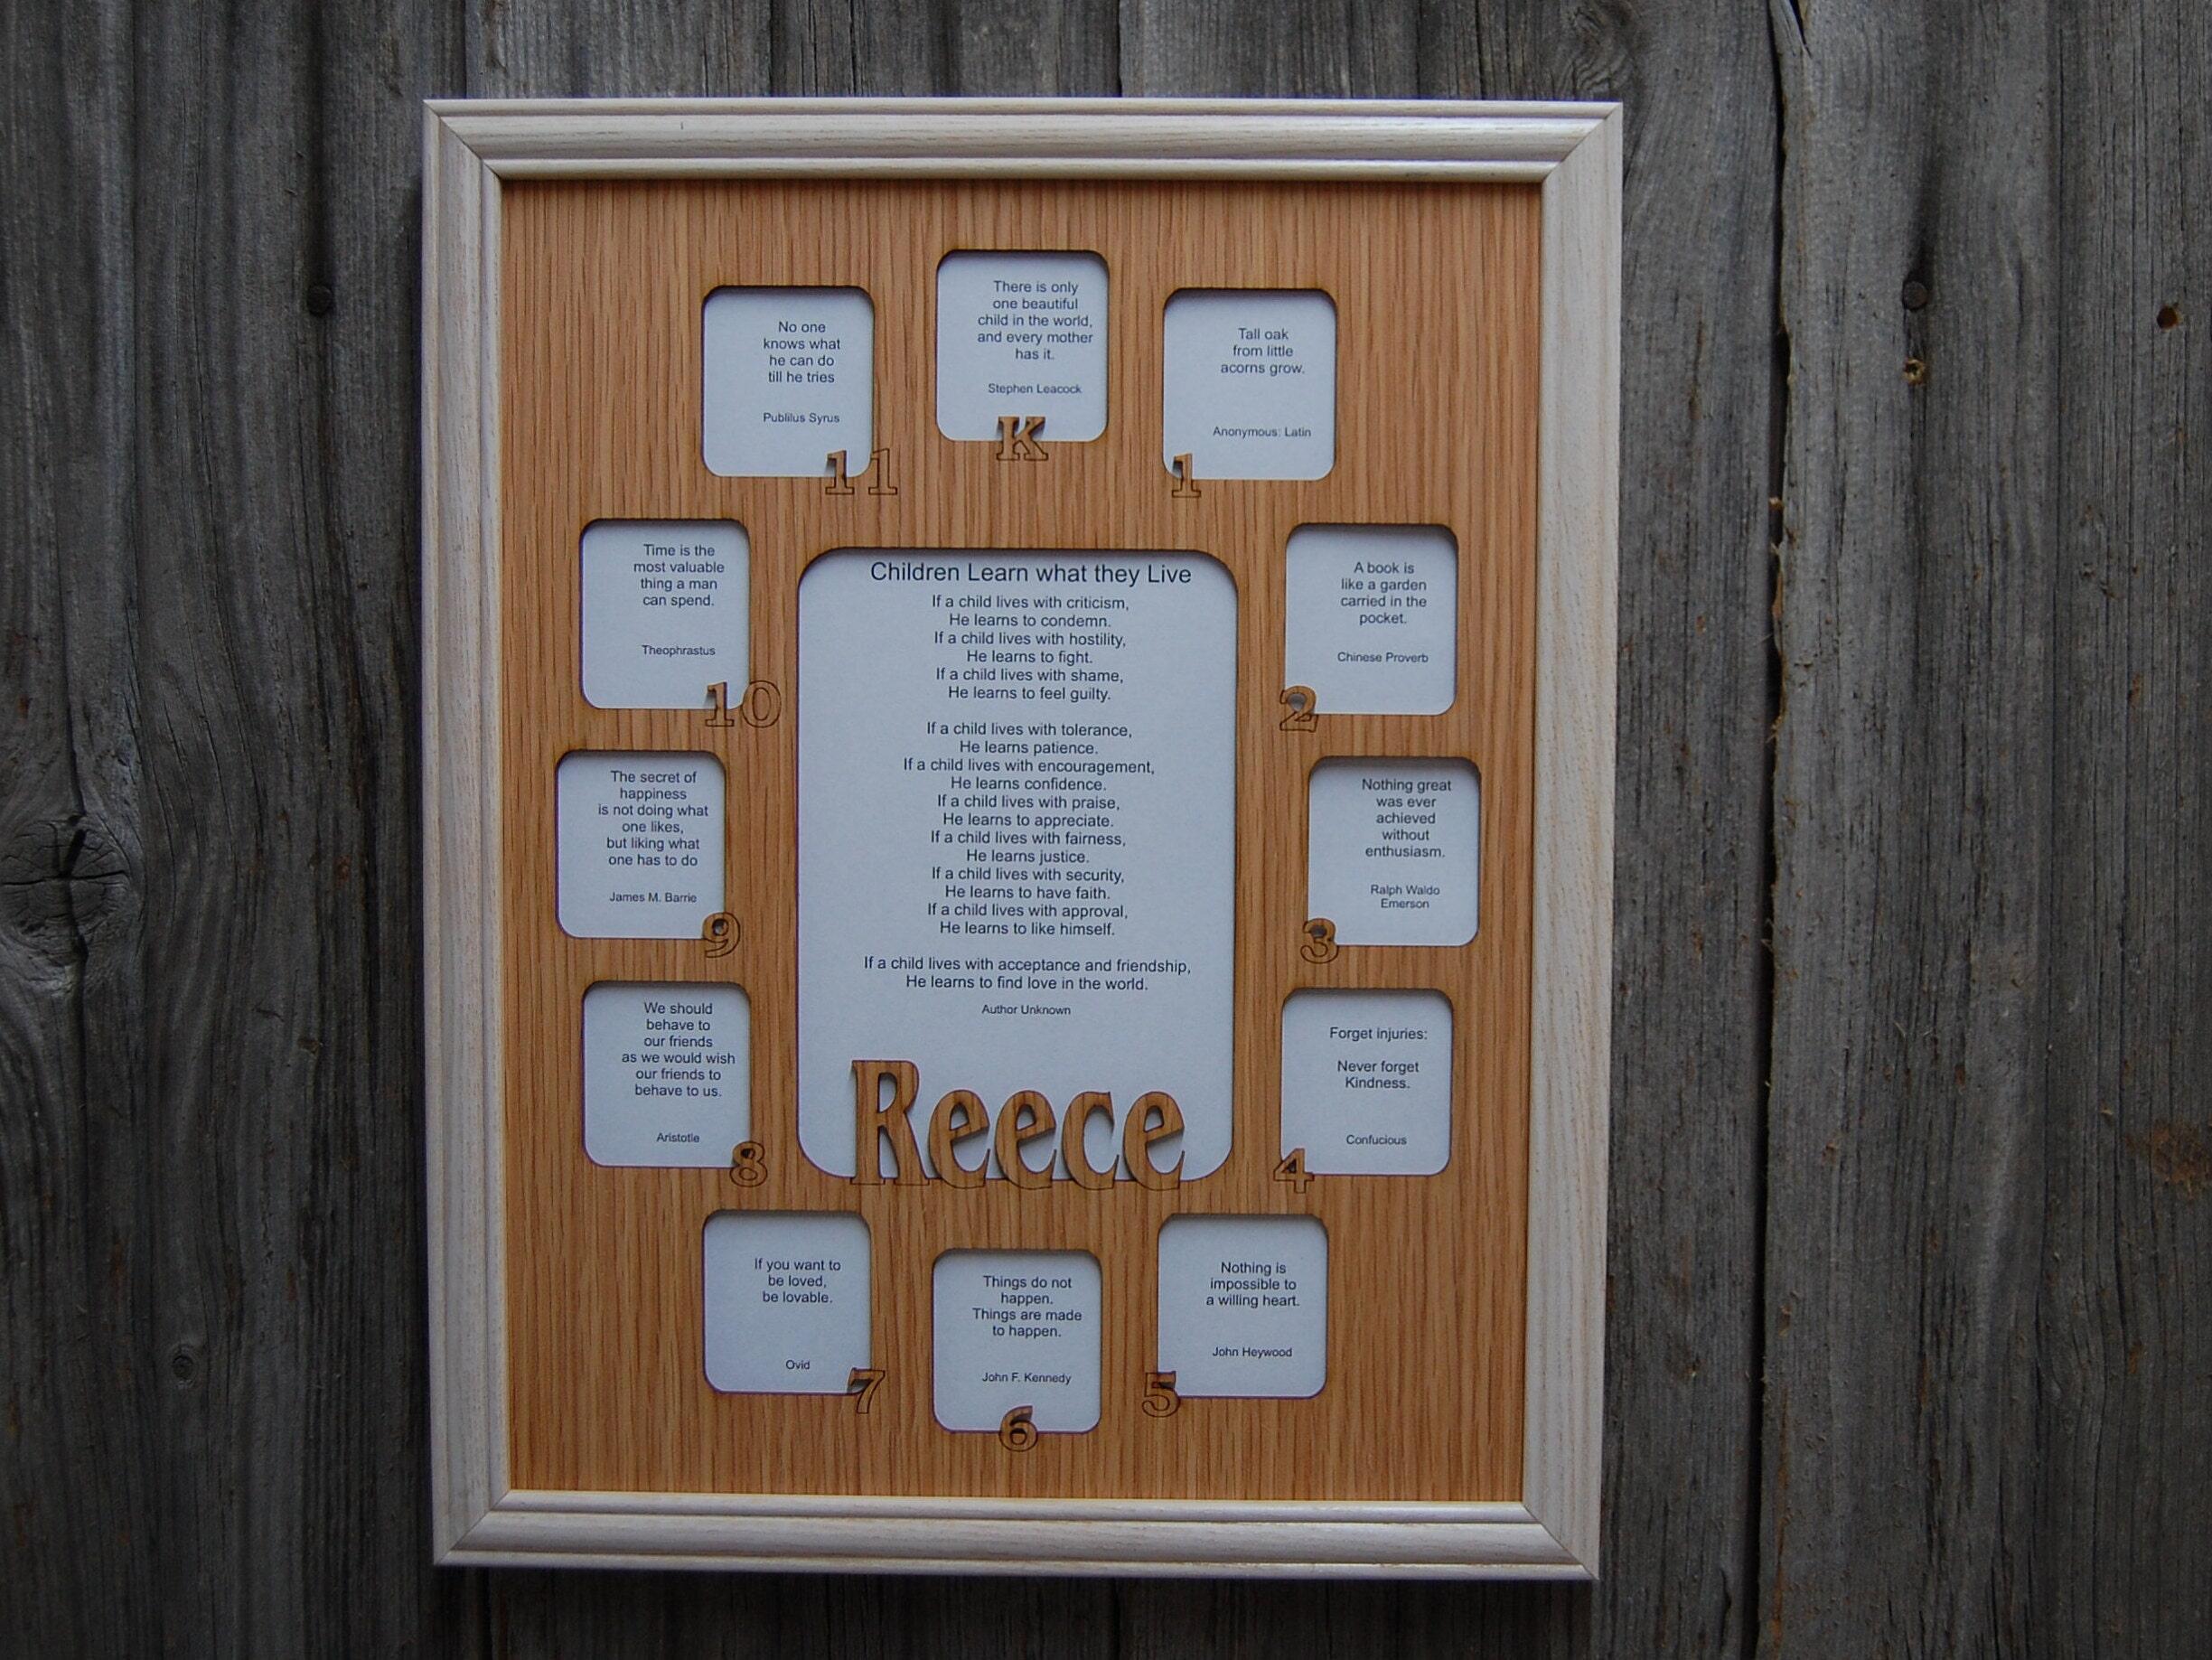 There is only
one beautiful
child in the world,
and every mother
has it.
Stephen Leacock
K
Tall oak
from little
acorns grow.
Anonymous: Latin
1
A book is
like a garden
carried in the
pocket.
Chinese Proverb
2
Nothing great
was ever
achieved
without
enthusiasm.
Ralph Waldo
Emerson
3
Forget injuries:
Never forget
Kindness.
Confucious
4
Nothing is
impossible to
a willing heart.
John Heywood
5
Things do not
happen.
Things are made
to happen.
John F. Kennedy
6
If you want to
be loved,
be lovable.
Ovid
7
We should
behave to
our friends
as we would wish
our friends to
behave to us.
Aristotle
8
The secret of
happiness
is not doing what
one likes,
but liking what
one has to do
James M. Barrie
9
Time is the
most valuable
thing a man
can spend.
Theophrastus
10
No one
knows what
he can do
till he tries
Publilus Syrus
11
Children Learn what they Live
If a child lives with criticism,
He learns to condemn.
If a child lives with hostility,
He learns to fight.
If a child lives with shame,
He learns to feel guilty.
If a child lives with tolerance,
He learns patience.
If a child lives with encouragement,
He learns confidence.
If a child lives with praise,
He learns to appreciate.
If a child lives with fairness,
He learns justice.
If a child lives with security,
He learns to have faith.
If a child lives with approval,
He learns to like himself.
If a child lives with acceptance and friendship,
He learns to find love in the world.
Author Unknown
Reece